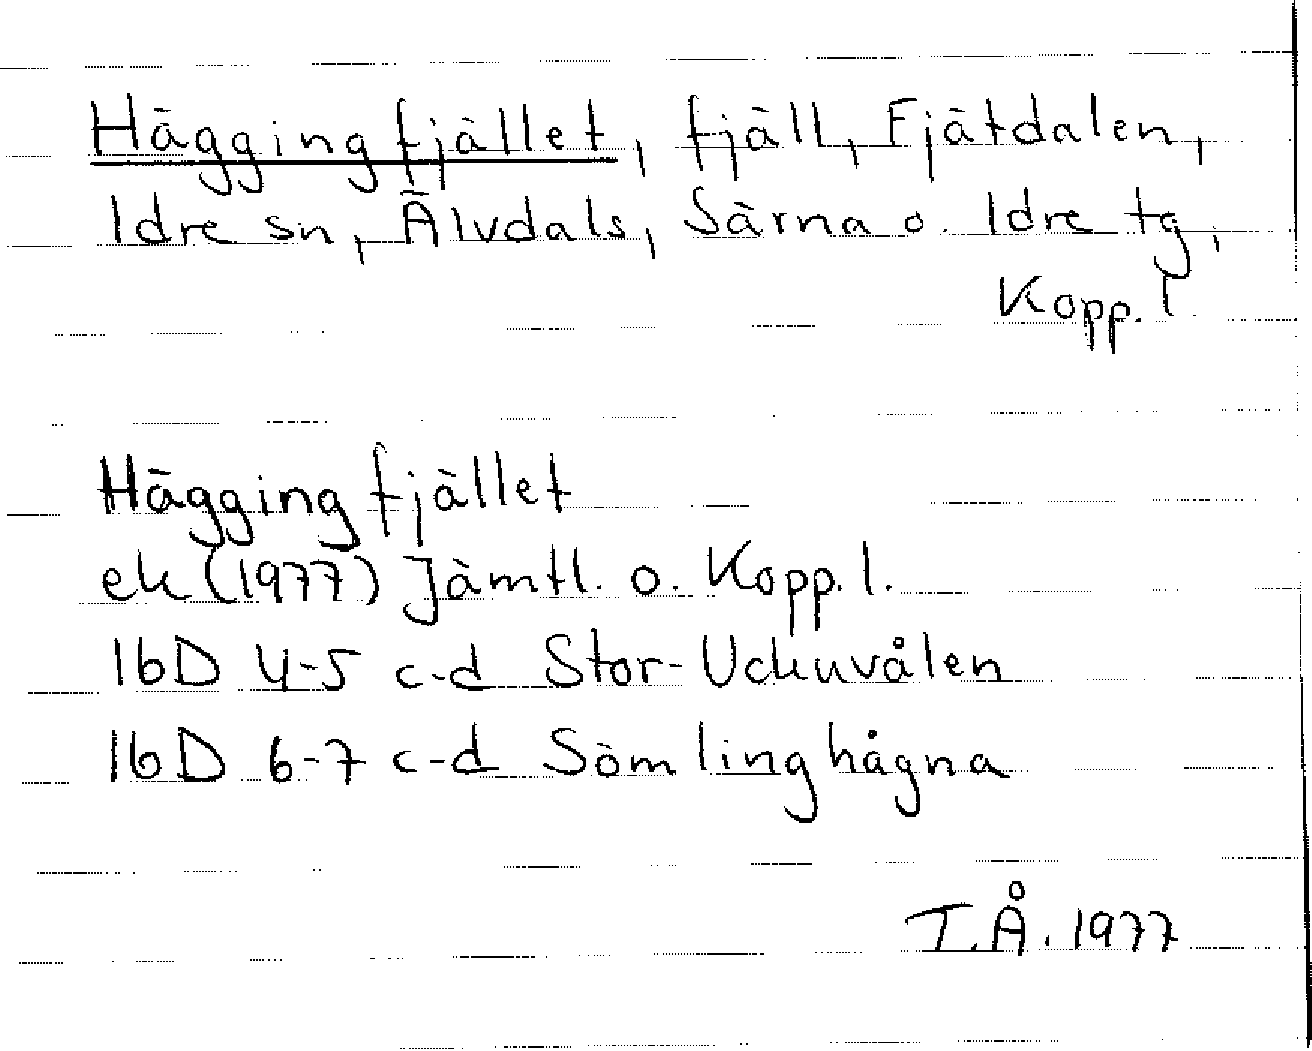 Häggingfjället, fjäll, Fjätdalen,
Idre sn, Älvdals, Särna o. Idre tg,
Kopp. l
Häggingfjället
ek (1977) Jämtl. o. Kopp. l.
16D 4-5 c-d Stor-Uckuvålen
16D 6-7 c-d Sömlinghågna
T.Å. 1977